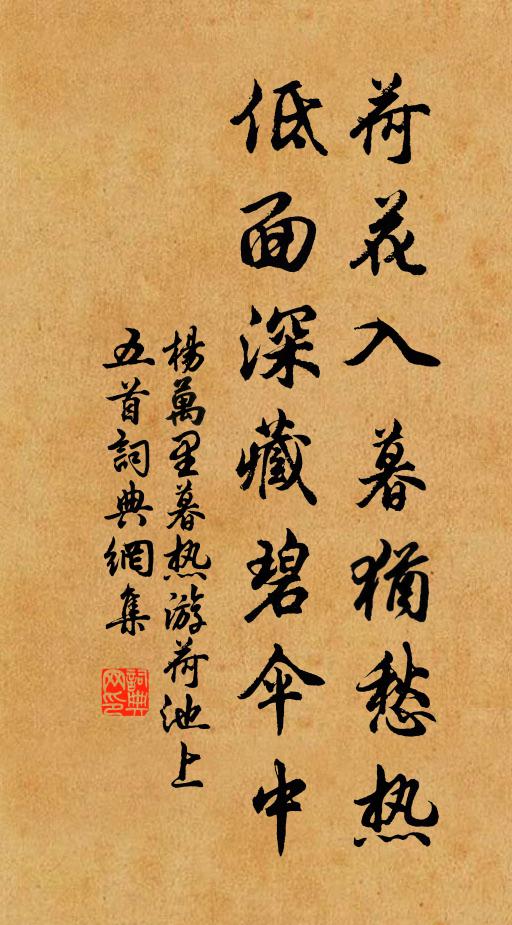 荷花入暮猶愁热
低面深藏碧伞中
楊萬里暮热游荷池上
五首詞典網集
詞典网印